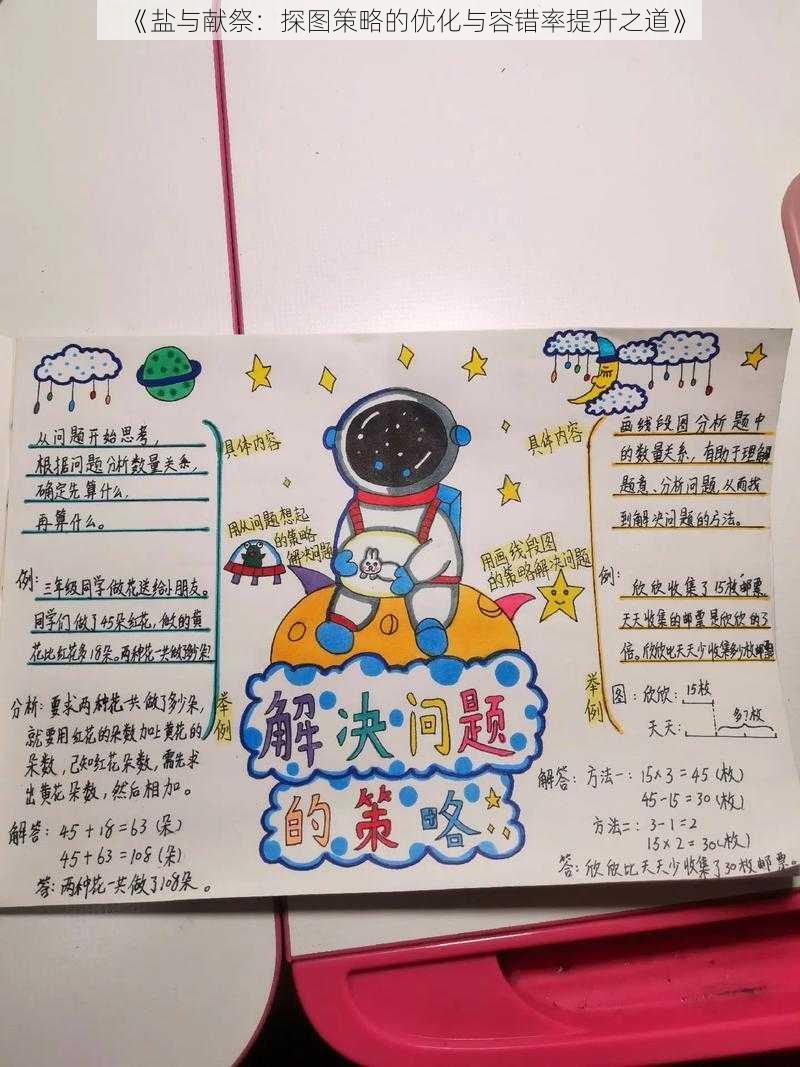 《盐与献祭：探图策略的优化与容错率提升之道》
从问题开始思考，
根据问题分析数量关系，
确定先算什么，
再算什么。
具体内容
用从问题想起
的策略
解决问题
例：三年级同学做花送给小朋友。
同学们做了45朵红花，做的黄
花比红花多18朵。两种花一共做了多少朵
举例
分析：要求两种花一共做了多少朵，
就要用红花的朵数加上黄花的
朵数，已知红花朵数，需先求
出黄花朵数，然后相加。
解答：45+18=63（朵）
45+63=108（朵）
答：两种花一共做了108朵。
解决问题
的策略
具体内容
画线段图分析题中
的数量关系，有助于理解
题意、分析问题，从而找
到解决问题的方法。
用画线段图
的策略解决问题
例：欣欣收集了15枚邮票
天天收集的邮票是欣欣的3
倍。欣欣比天天少收集多少枚邮票
举例
图：欣欣：15枚
天天：多?枚
解答：方法一：15×3=45（枚）
45-15=30（枚）
方法二：3-1=2
15×2=30（枚）
答：欣欣比天天少收集了30枚邮票。